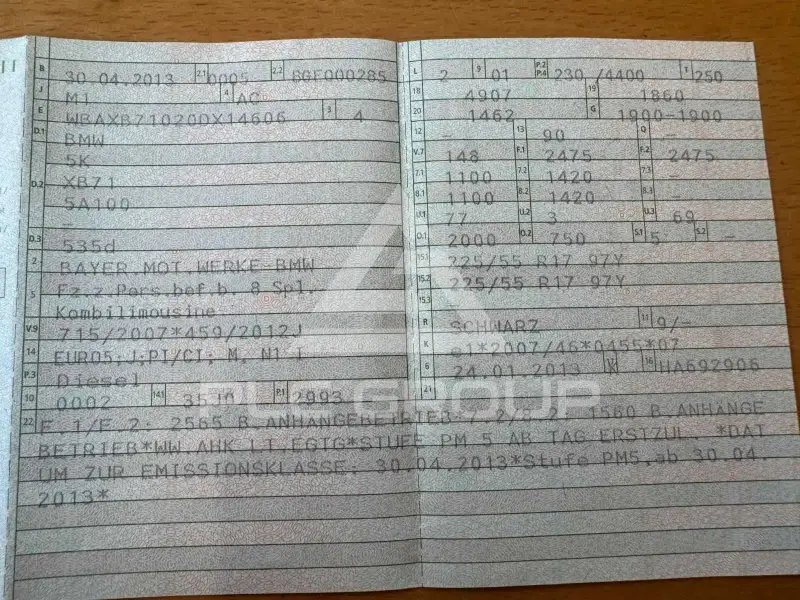 B 30.04.2013 2.1 0005 2.2 BGF000285
J M1 4 AC
E WBAXB71020DX14606 3 4
D.1 BMW
5K
D.2 XB71
5A100
-
D.3 535d
2 BAYER.MOT.WERKE-BMW
5 Fz.z.Pers.bef.b. 8 Spl.
Kombilimousine
V.9 715/2007*459/2012J
14 EURO5;J;PI/CI; M, N1 I
P.3 Diesel
10 0002 14.1 35J0 P.1 2993
L 2 9 01 P.2 P.4 230 /4400 T 250
18 4907 19 1860
20 1462 G 1900-1900
12 - 13 90 Q -
V.7 148 F.1 2475 F.2 2475
7.1 1100 7.2 1420 7.3 -
8.1 1100 8.2 1420 8.3 -
U.1 77 U.2 3 U.3 69
O.1 2000 O.2 750 S.1 5 S.2 -
15.1 225/55 R17 97Y
15.2 225/55 R17 97Y
15.3 -
R SCHWARZ 11 9/-
K e1*2007/46*0455*07
6 24.01.2013 K 16 HA692906
21
22 F.1/F.2: 2565 B.ANHÄNGEBETRIEB*7.2/8.2: 1560 B.ANHÄNGE
BETRIEB*WW.AHK LT.EGTG*STUFE PM 5 AB TAG ERSTZUL. *DAT
UM ZUR EMISSIONSKLASSE: 30.04.2013*Stufe PM5,ab 30.04.
2013*
PLC GROUP